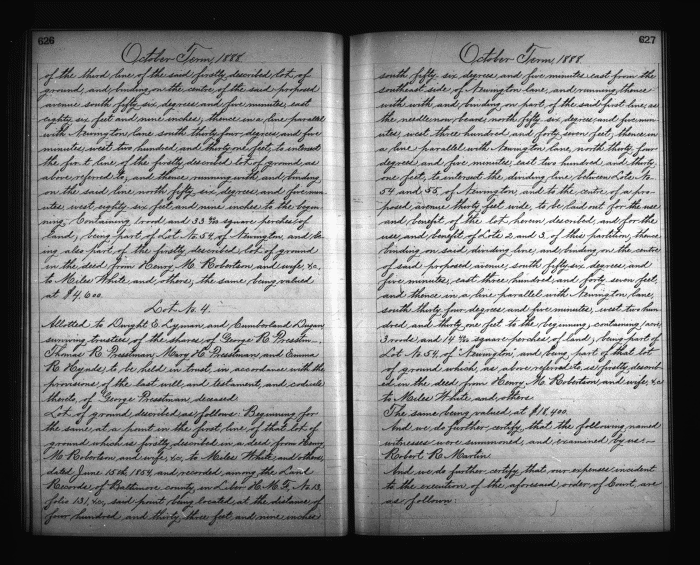 626
October Term, 1888.
of the third line of the said firstly described lot of
ground, and binding on the centre, of the said proposed
avenue south fifty six degrees and five minutes, east
eighty six feet and nine inches, thence in a line parallel
with Newington lane south thirty four degrees and five
minutes, west two hundred and thirty one feet, to intersect
the first line of the firstly described lot of ground, as
above referred to, and thence, running with and, binding
on the said line, north fifty six degrees and five min-
utes, west, eighty six feet and nine inches to the begin-
ning, Containing 1 rood and 33 square perches of
land, being part of Lot No 54 of Newington, and be-
ing also part of the firstly described lot of ground
in the deed from Henry M. Robertson and wife, &c.
to Miles White and others; the same being valued
at $4.600.
Lot No. 4.
Allotted to Dwight E Lyman, and Cumberland Dugan
surviving trustees of the shares of George R. Presstm-
Thomas R. Presstman, Mary H. Presstman, and Emma
R. Hyade; to be held in trust, in accordance with the
provisions of the last will and testament, and codicils
thereto, of George Presstman deceased
Lot of ground, described as follows: Beginning for
the same, at a point in the first, line, of that lot of
ground which is firstly, described in a deed from Henry
M Robertson and wife, &c. to Miles White, and others,
dated June 15th, 1854, and recorded, among the Land
Records of Baltimore county, in Liber H.M.F. No 13
folio 131, &c., said point, being located, at the distance of
four hundred and thirty, three feet and nine inches
627
October Term, 1888.
south fifty six degrees and five minutes east from the
southeast side of Newington lane, and running, thence
with with and, binding on part of the said first line, as
the needle now bears, north fifty six, degrees and five min-
utes, west, three hundred and forty seven feet, thence in
a line parallel with Newington lane, north thirty four
degrees and five minutes, east two hundred and thirty
one feet, to intersect the dividing line between Lots No
54 and 55, of Newington, and to the centre of a pro-
posed avenue thirty feet wide, to be laid out for the use
and benefit, of the lot herein described, and for the
use, and benefit of Lots 2 and 3, of this partition, thence
binding on said dividing line and binding on the centre
of said proposed avenue, south fifty six degrees, and
five minutes, east three hundred, and forty seven feet,
and thence in a line parallel with Newington lane,
south thirty four degrees and five minutes, west two hun-
dred and thirty one feet to the beginning; containing 1 acre,
3 roods, and 14 square perches of land, being part of
Lot No 54, of Newington, and being part of that lot
of ground which, as above referred to, is firstly describ-
ed in the deed from Henry M. Robertson, and wife, &c
to Miles White and others.
The same being valued at $18,400.
And, we do further, certify, that the following, named
witnesses were summoned, and examined by us:—
Robert R. Martin
And, we do further, certify, that our expenses incident
to the execution of the aforesaid order of Court, are
as follows: